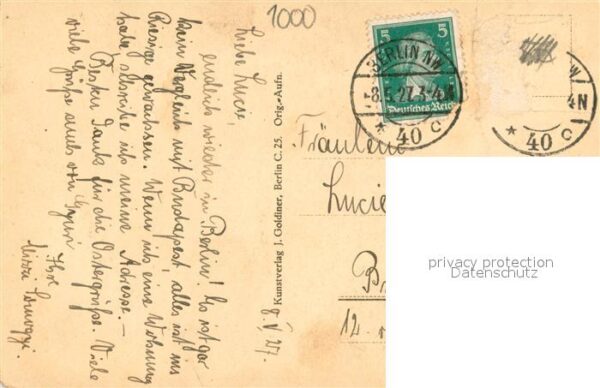 1000
Liebe Lucie,
endlich wieder in Berlin! Es ist gar
kein Vergleich mit Budapest, alles ist ins
Riesige gewachsen. Wenn ich eine Wohnung
habe schreibe ich meine Adresse.—
Besten Dank für die Ostergrüße. Viele
viele Grüße auch von
Ihre
8. V. 27.
Kunstverlag J. Goldiner, Berlin C. 25. Orig.-Aufn.
5 5
Deutsches Reich
BERLIN NW
-8.5.27.3-4N
* 40 c
W
4N
* 40 c
Fräulein
Lucie
B
12.
privacy protection
Datenschutz